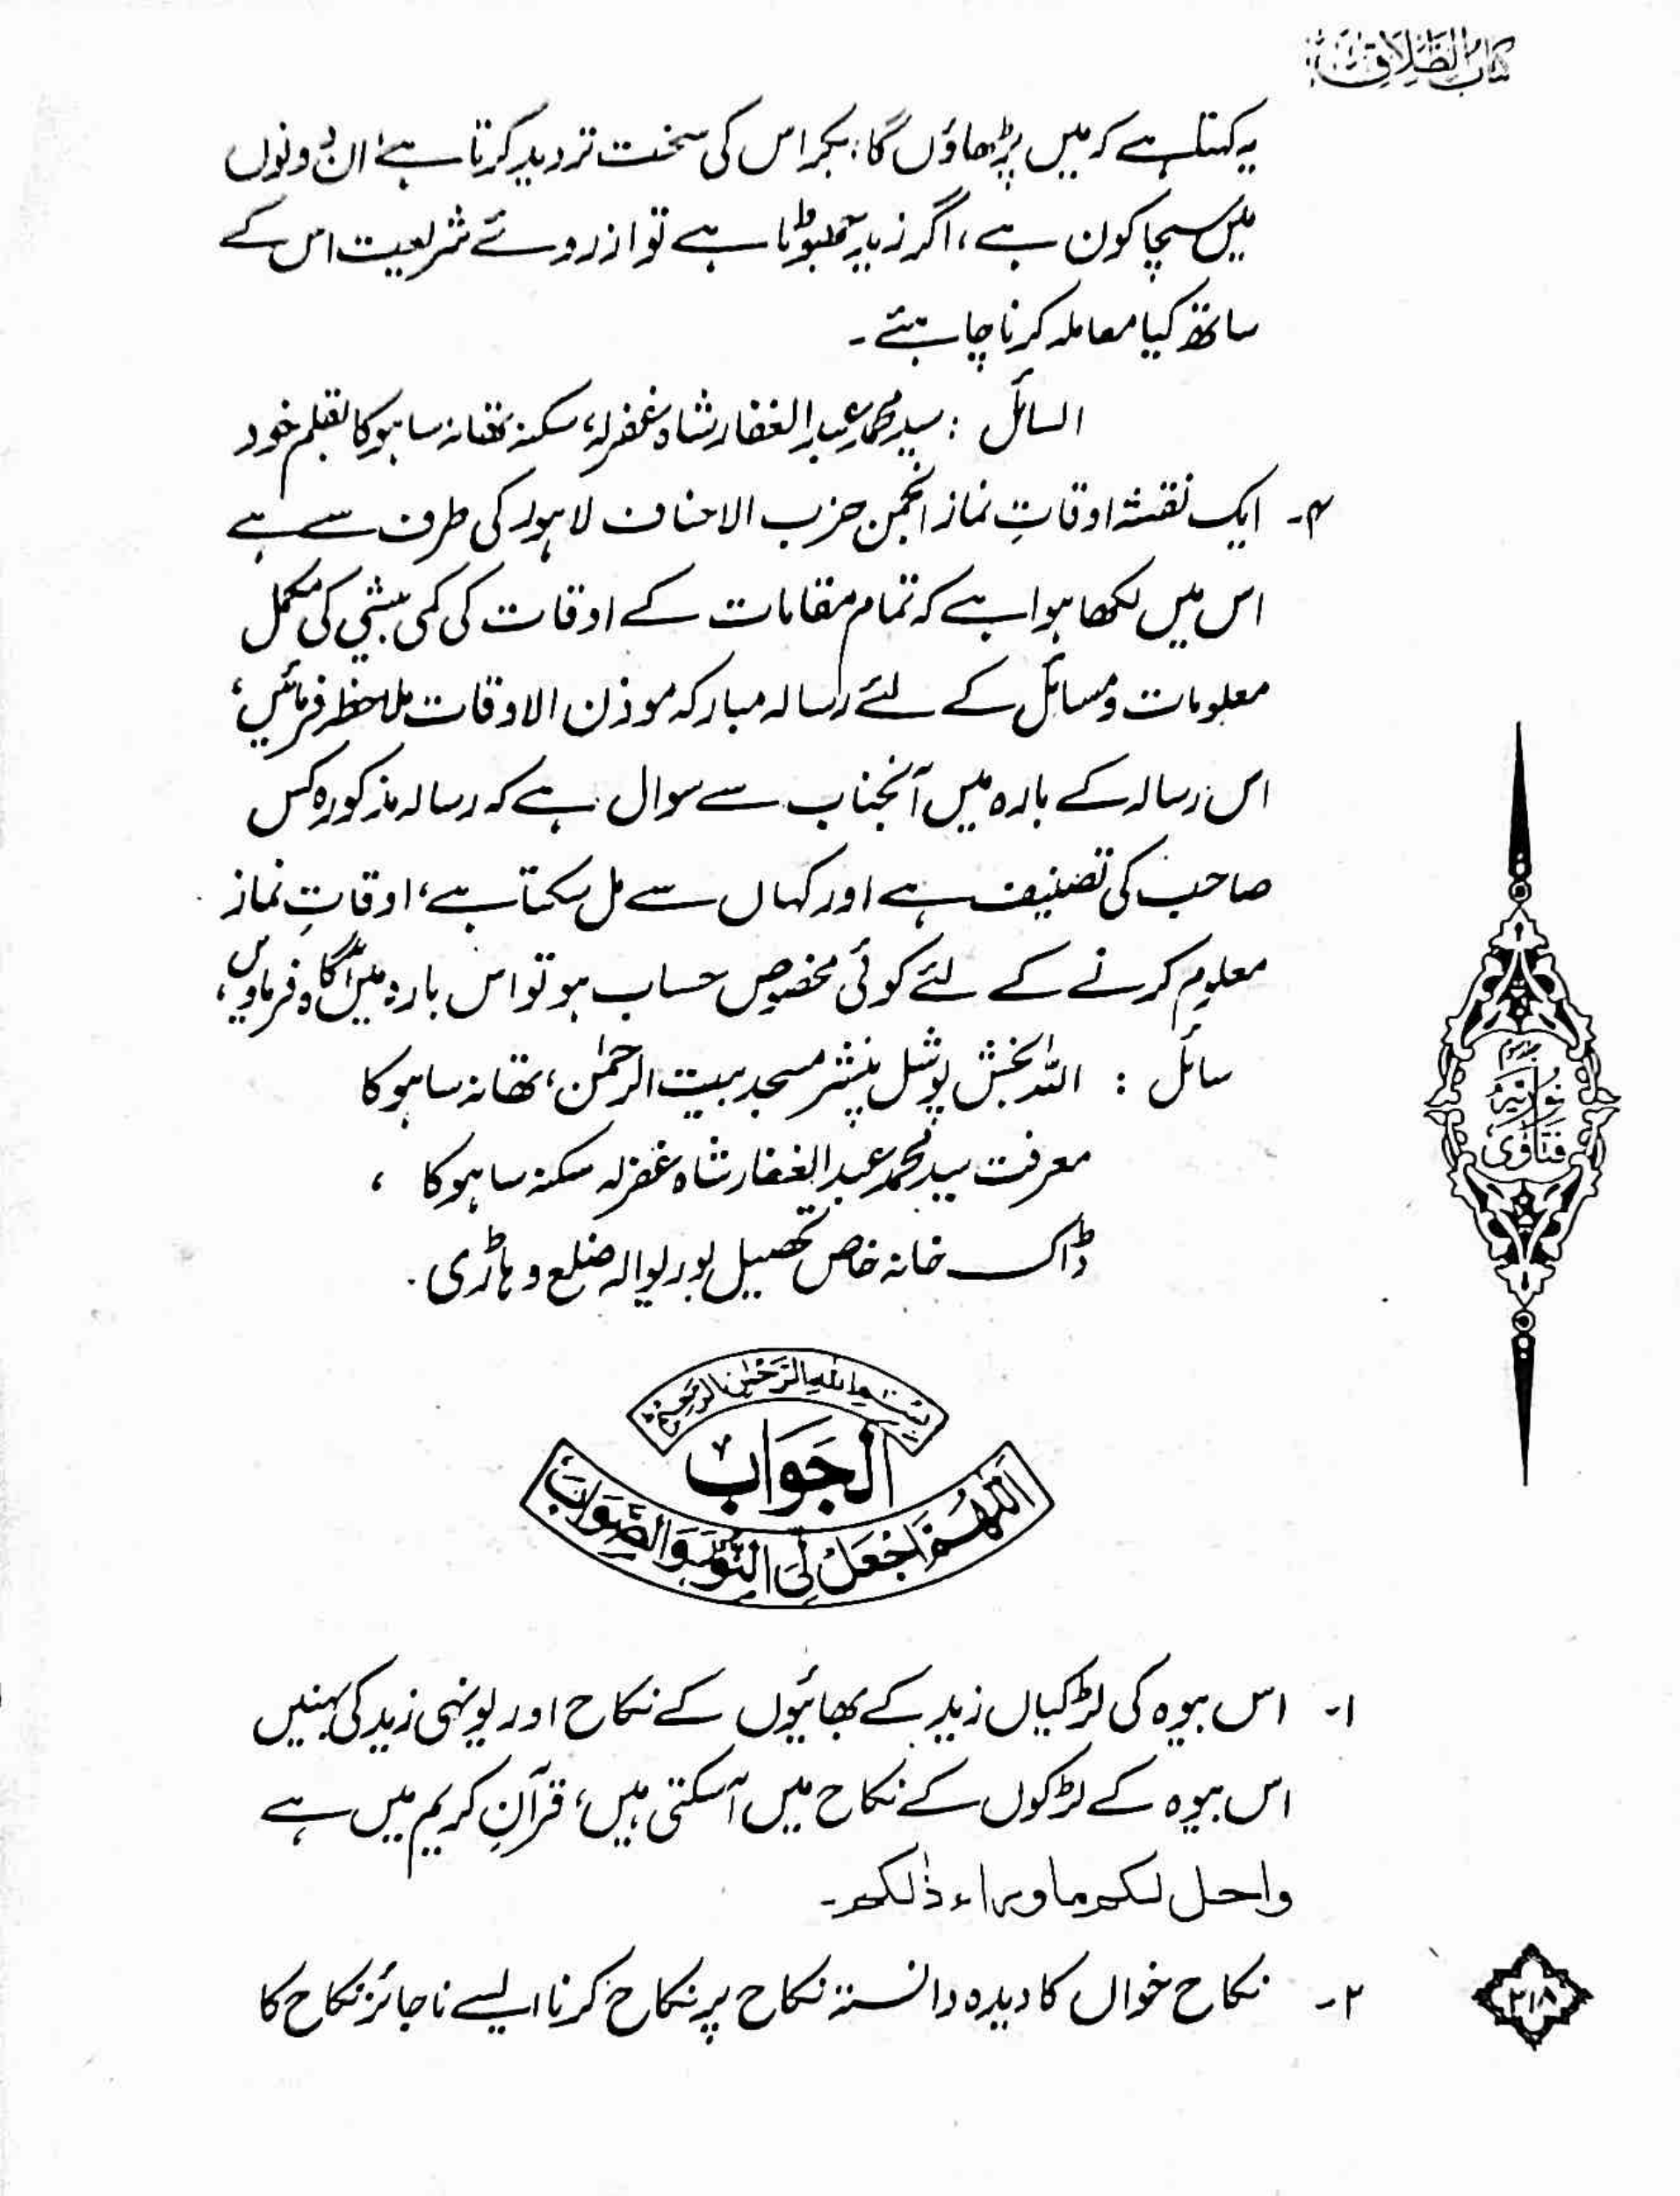 کتاب الطلاق
یہ کہتا ہے کہ میں پڑھاؤں گا، بکر اس کی سخت تردید کرتا ہے، ان دونوں
میں سچا کون ہے، اگر زید جھوٹا ہے تو از روئے شریعت اس کے
ساتھ کیا معاملہ کرنا چاہئے۔
السائل : سید محمد عبدالغفار شاہ غفرلہ، سکنہ تھانہ ساہوکا بقلم خود
۴۔ ایک نقشہ اوقاتِ نماز انجمن حزب الاحناف لاہور کی طرف سے ہے
اس میں لکھا ہوا ہے کہ تمام مقامات کے اوقات کی کمی بیشی کی مکمل
معلومات و مسائل کے لئے رسالہ مبارکہ موذن الاوقات ملاحظہ فرمائیں،
اس رسالہ کے بارہ میں آنجناب سے سوال ہے کہ رسالہ مذکورہ کس
صاحب کی تصنیف ہے اور کہاں سے مل سکتا ہے، اوقاتِ نماز
معلوم کرنے کے لئے کوئی مخصوص حساب ہو تو اس بارہ میں آگاہ فرماویں،
سائل : اللہ بخش پوسٹل پنشنر مسجد بیت الرحمٰن، تھانہ ساہوکا
معرفت سید محمد عبدالغفار شاہ غفرلہ سکنہ ساہوکا ،
ڈاک خانہ خاص تحصیل بوریوالہ ضلع وہاڑی۔
فتاوٰی نوریہ
بسم اللہ الرحمٰن الرحیم
الجَوَاب
اَللّٰهُمَّ اجْعَلْ لِیَ النُّوْرَ وَالصَّوَابَ
۱۔ اس بیوہ کی لڑکیاں زید کے بھائیوں کے نکاح اور یونہی زید کی بہنیں
اس بیوہ کے لڑکوں کے نکاح میں آسکتی ہیں، قرآنِ کریم میں ہے
واحل لکم ماوراء ذٰلکم۔
۲۔ نکاح خواں کا دیدہ دانستہ نکاح پر نکاح کرنا ایسے ناجائز نکاح کا
۳۱۸